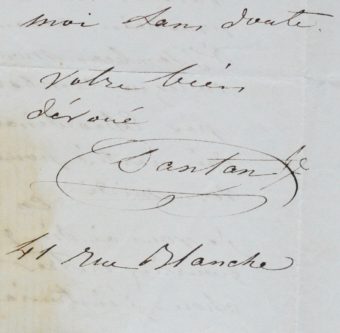 moi sans doute.
votre bien
dévoué
Dantan Je
41 rue Blanche